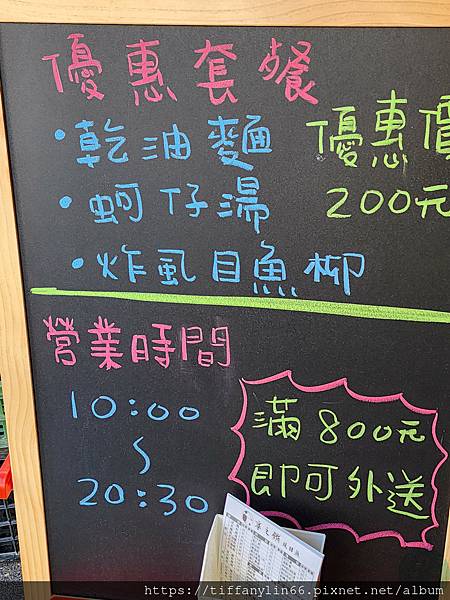 優惠套餐
·乾油麵
·蚵仔湯
·炸虱目魚柳
優惠價
200元
營業時間
10:00
~
20:30
滿800元
即可外送
https://tiffanylin66.pixnet.net/album